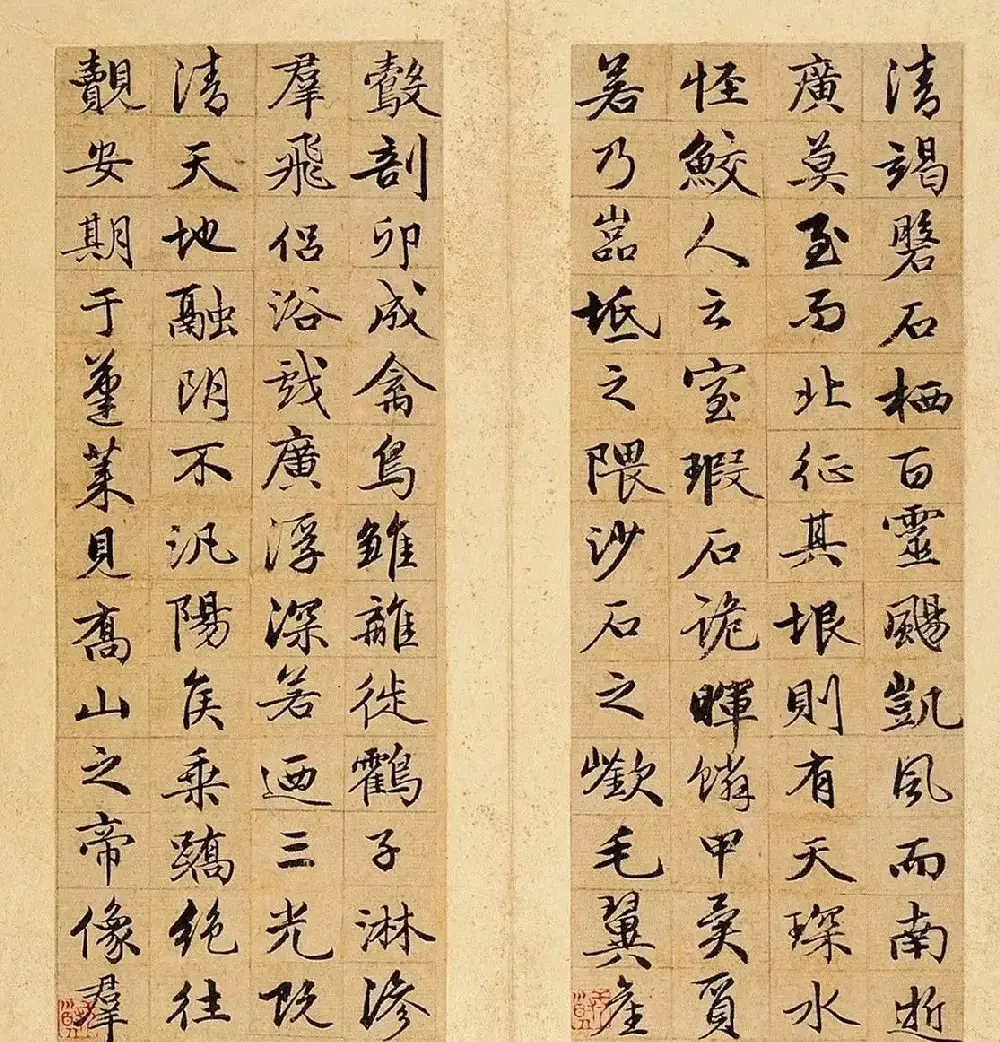 清竭磐石栖百靈颺凱風而南逝
廣莫至而北征其垠則有天琛水
怪鮫人云室瑕石詭暉鱗甲異質
若乃嵓坻之隈沙石之嶔毛翼產
鷇剖卵成禽鳧雛離徙鸖子淋滲
羣飛侶浴戲廣浮深若迺三光既
清天地融朗不汎陽侯乘蹻絕往
覿安期于蓬萊見喬山之帝像羣